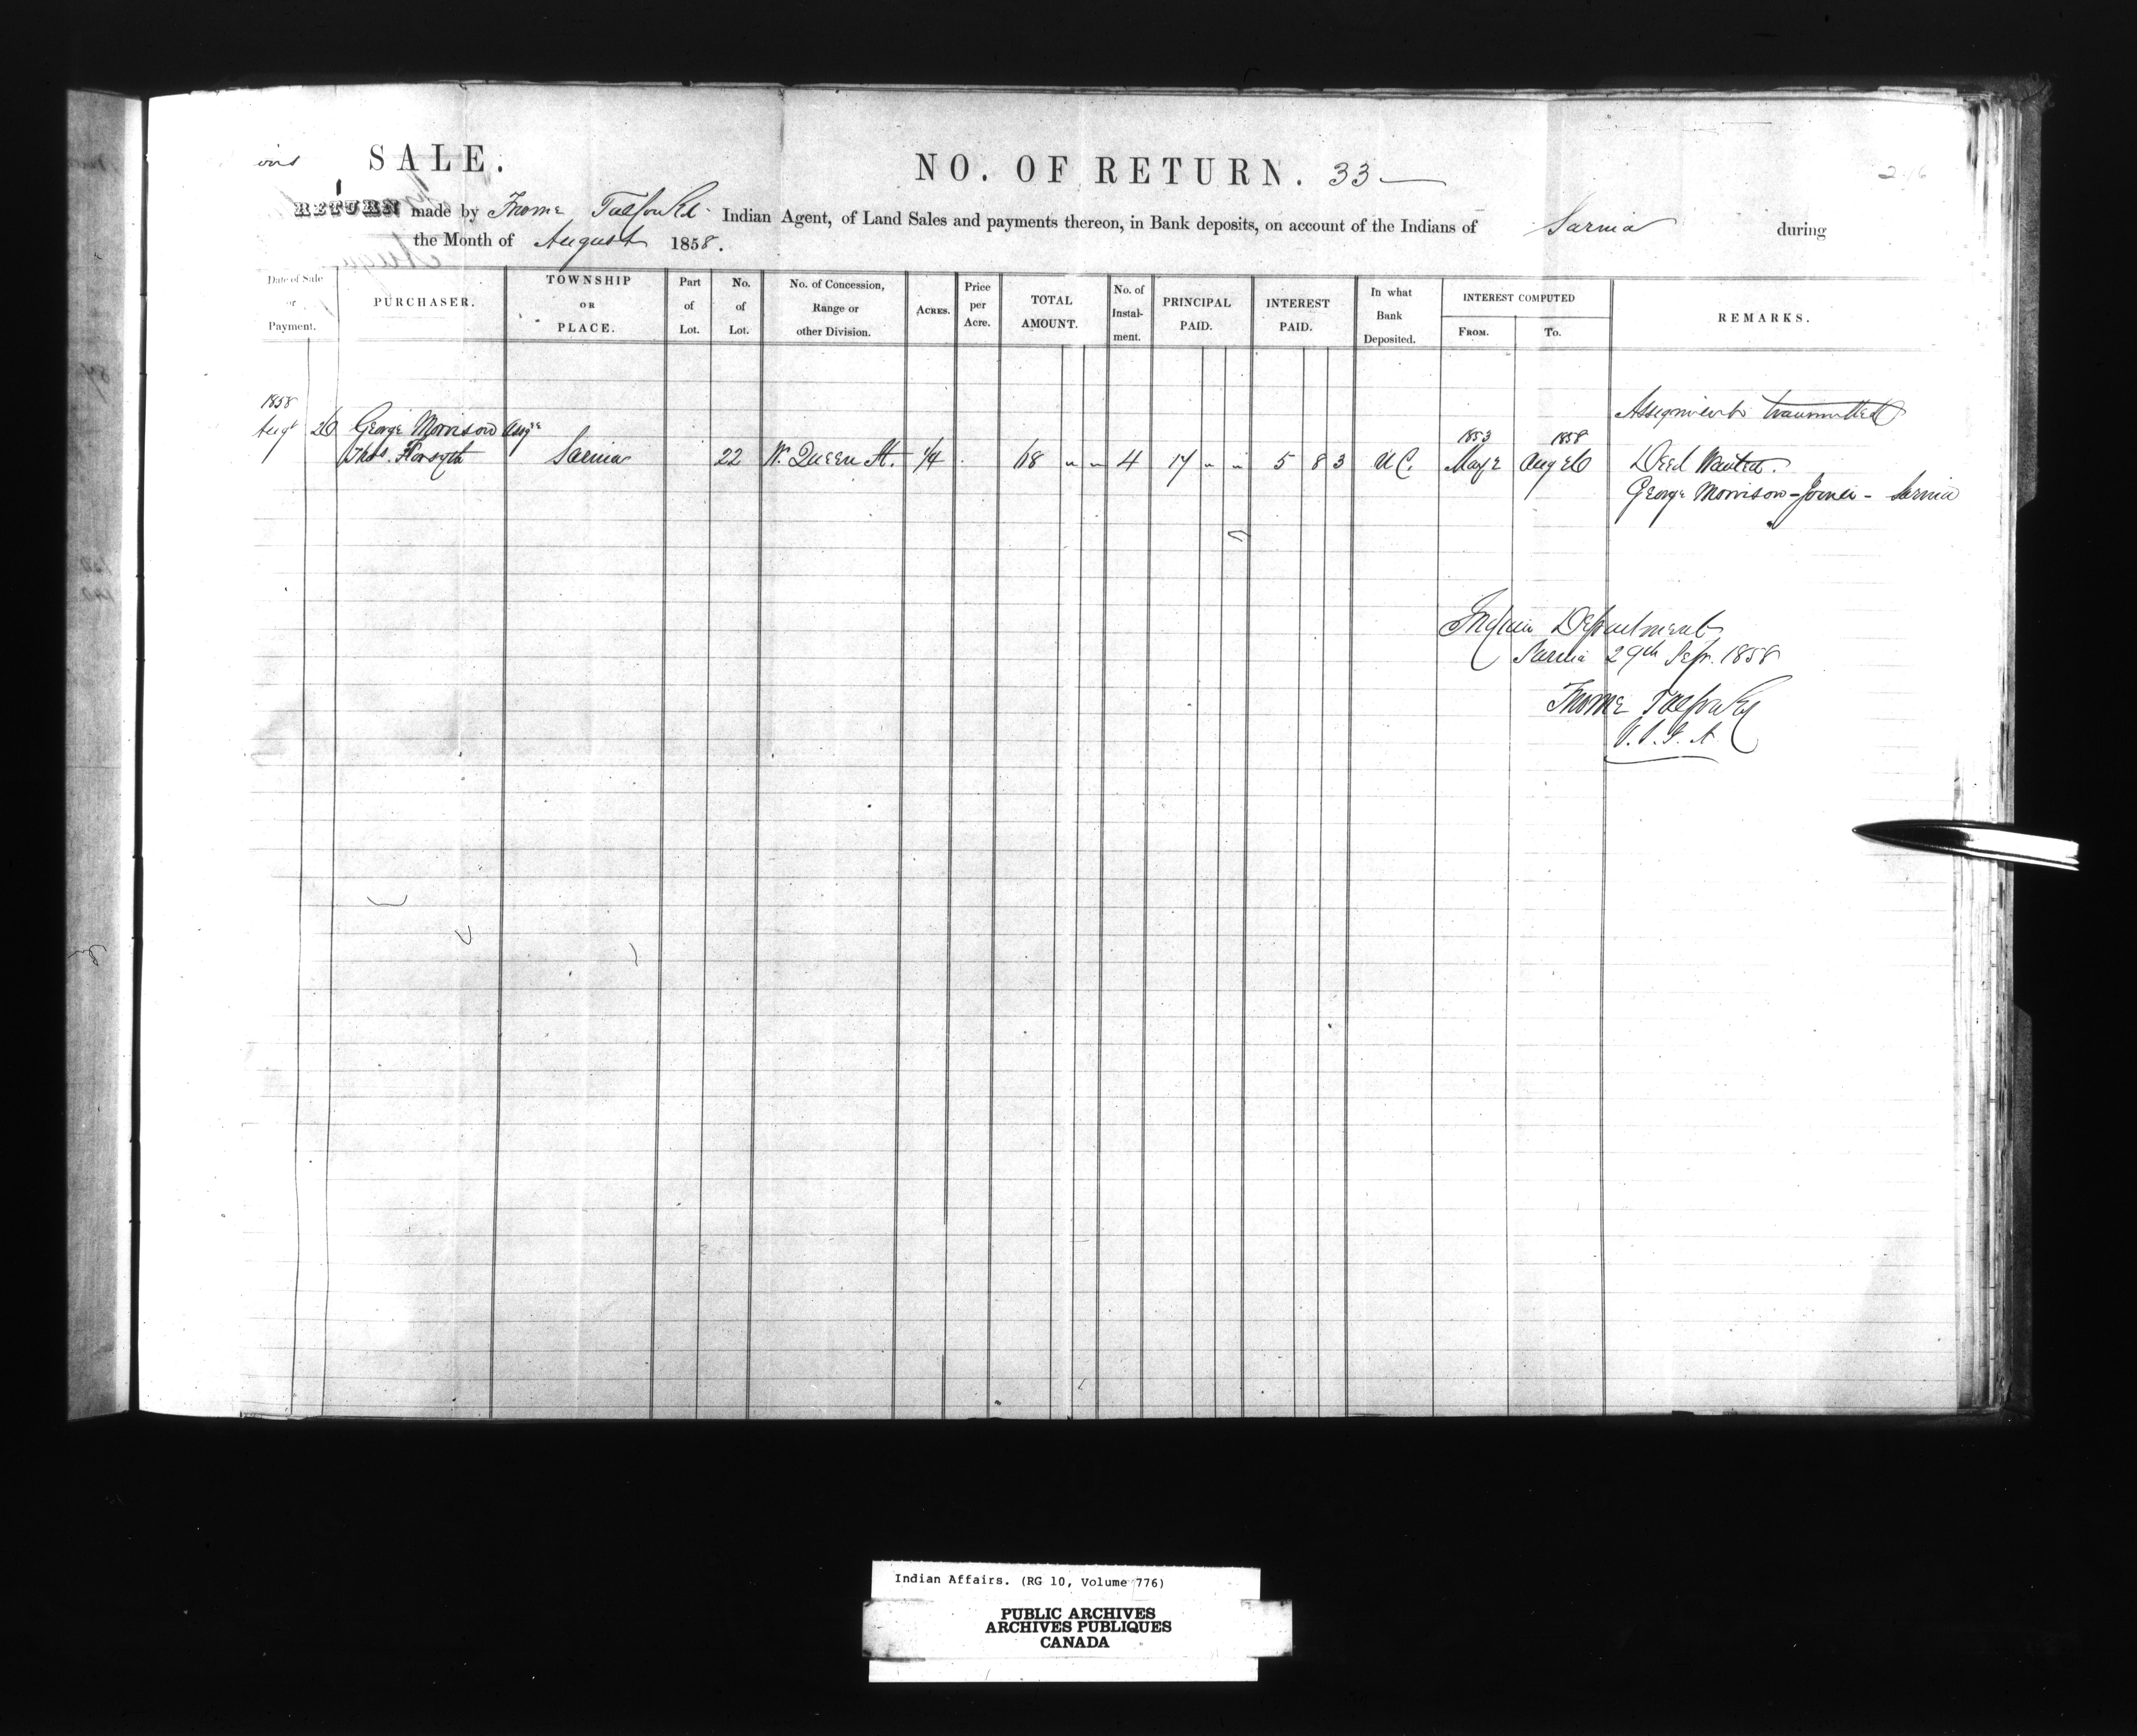 SALE.
NO. OF RETURN. 33
RETURN made by Froome Talfourd Indian Agent, of Land Sales and payments thereon, in Bank deposits, on account of the Indians of Sarnia during
the Month of August 1858.
Date of Sale or Payment.
PURCHASER.
TOWNSHIP OR PLACE.
Part of Lot.
No. of Lot.
No. of Concession, Range or other Division.
ACRES.
Price per Acre.
TOTAL AMOUNT.
No. of Instalment.
PRINCIPAL PAID.
INTEREST PAID.
In what Bank Deposited.
INTEREST COMPUTED
FROM.
TO.
REMARKS.
1858
Assignment transmitted
Augt 26 George Morrison Assge
1853 1858
Thos. Forsyth Sarnia 22 W. Queen St. 1/4 68 " " 4 17 " " 5 8 3 U C. May 2 Aug 26 Deed Wanted.
George Morrison - Joiner - Sarnia
Indian Department
Sarnia 29th Sepr. 1858
Froome Talfourd
V. S. I. A.
Indian Affairs. (RG 10, Volume 776)
PUBLIC ARCHIVES
ARCHIVES PUBLIQUES
CANADA